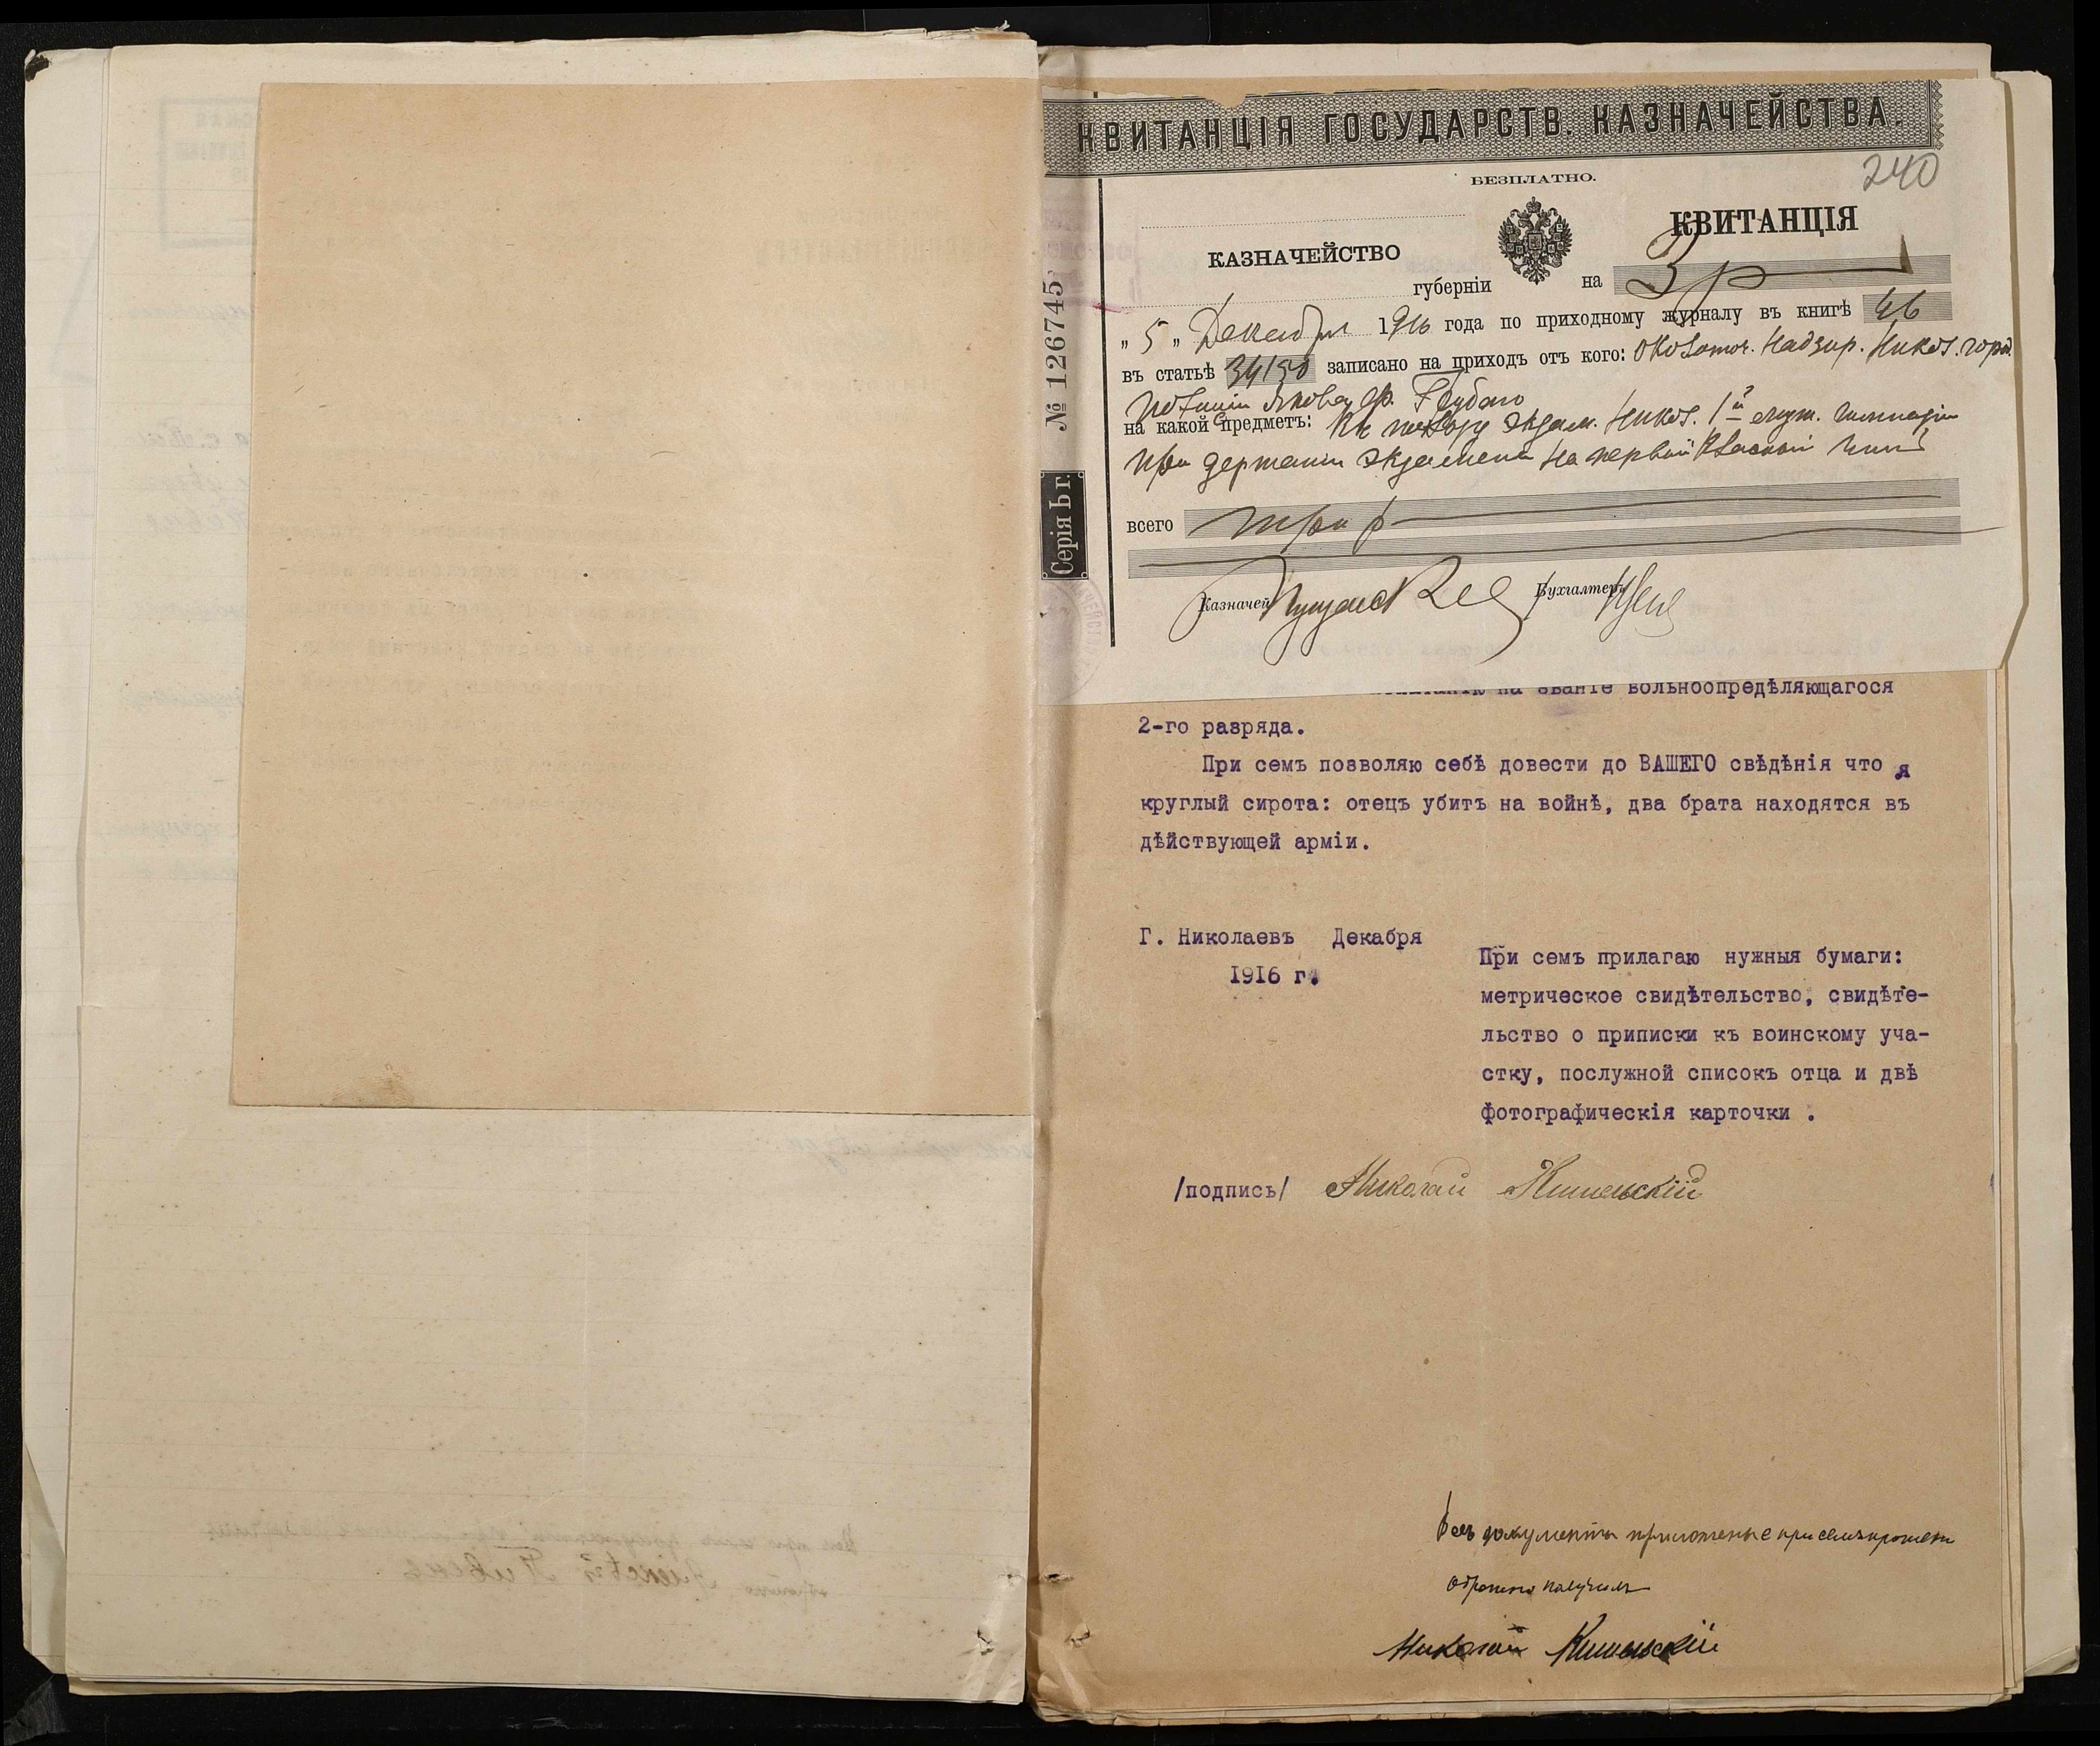 КВИТАНЦІЯ ГОСУДАРСТВ. КАЗНАЧЕЙСТВА.
БЕЗПЛАТНО.
240
КАЗНАЧЕЙСТВО
КВИТАНЦІЯ
губерніи
на 3 р
„ 5 „ Декабря 1916 года по приходному журналу въ книгѣ 46
въ статьѣ 34150 записано на приходъ отъ кого: околоточ. Надзир. Никол. город.
полиціи Якова
на какой предметъ: Въ пользу экзам. Никол. 1й муж. гимназіи
при держаніи экзамена на первый классный чинъ
всего три р
Казначей
Бухгалтеръ
№ 126745
Серія Ь г.
на званіе вольноопредѣляющагося
2-го разряда.
При семъ позволяю себѣ довести до ВАШЕГО свѣдѣнія что я
круглый сирота: отецъ убитъ на войнѣ, два брата находятся въ
дѣйствующей арміи.
Г. Николаевъ Декабря
1916 г.
При семъ прилагаю нужныя бумаги:
метрическое свидѣтельство, свидѣте-
льство о приписки къ воинскому уча-
стку, послужной списокъ отца и двѣ
фотографическія карточки .
/подпись/ Николай Кишенскій
Всѣ документы приложеные при семъ прошени
обратно получилъ
Николай Кишенскій